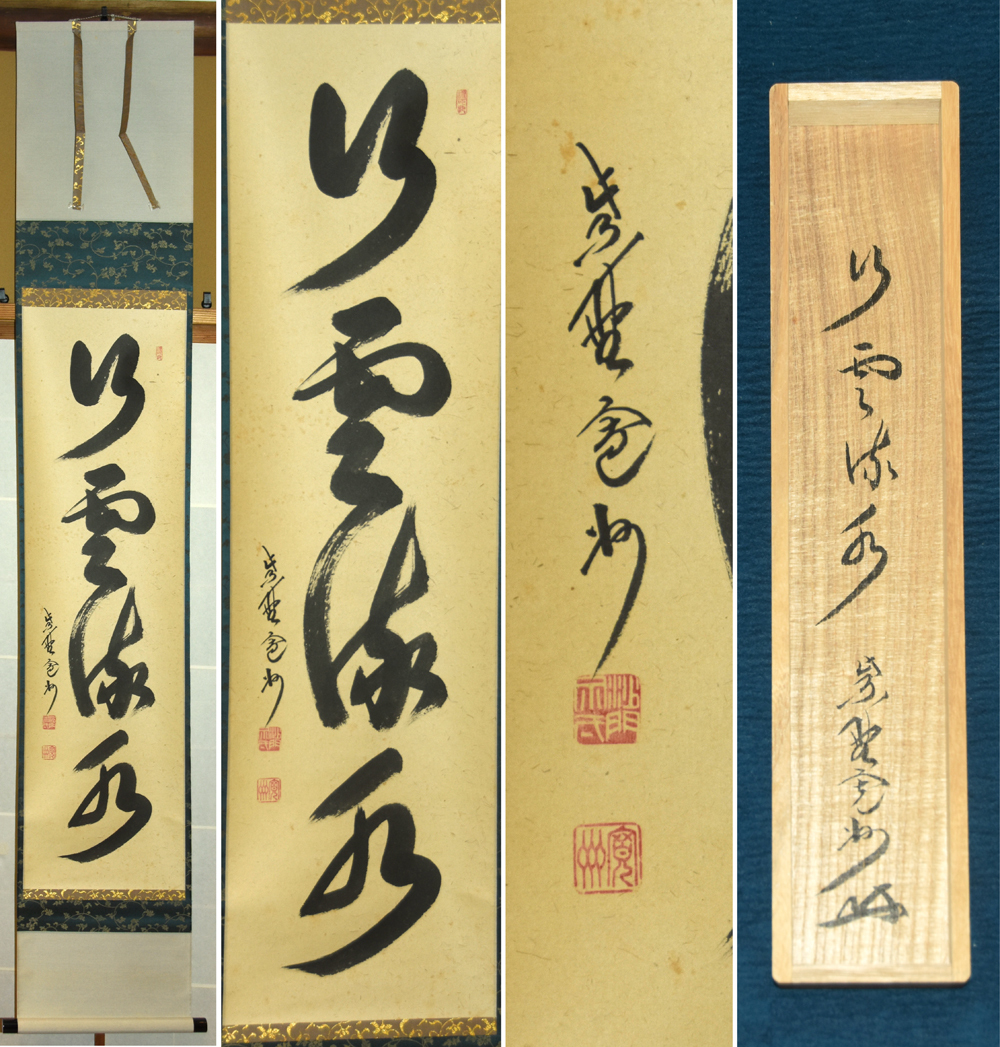 行雲流水
紫野寛州
行雲流水
紫野寛州
沙門
寛州
行雲流水
紫野寛州